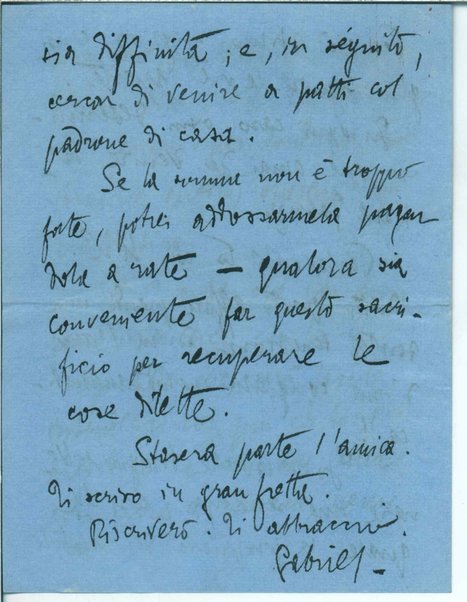 sia diffinità ; e, in séguito,
cercar di venire a patti col
padrone di casa.
Se la somma non è troppo
forte, potrei addossarmela pagan
dola a rate — qualora sia
conveniente far questo sacri-
ficio per recuperare le
cose dilette.
Stasera parte l'amica.
Ti scrivo in gran fretta.
Riscriverò. Ti abbraccio.
Gabriel —